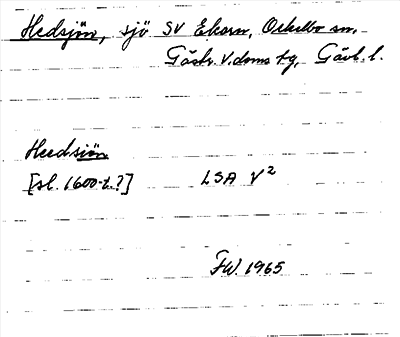 Hedsjön, sjö SV Ekorn, Ockelbo sn.
Gästr. V. doms tg, Gävl. l.
Heedsiön
[sl. 1600-t.?] LSA V²
FW. 1965